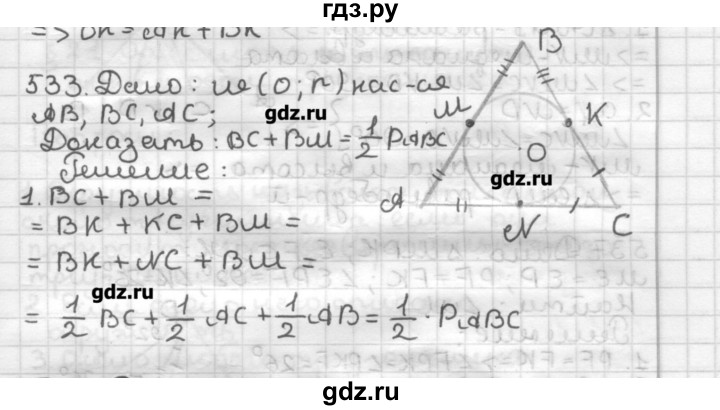 гдз.ру
=> BK = AK + BK
533. Дано: ω(O; r) кас-ся
AB, BC, AC;
gdz.ru
Доказать: BC + BM = 1/2 PABC
Решение:
1. BC + BM =
= BK + KC + BM =
= BK + NC + BM =
gdz.ru
= 1/2 BC + 1/2 AC + 1/2 AB = 1/2 · PABC
B
M
K
O
gdz.ru
A
N
C
gdz.ru